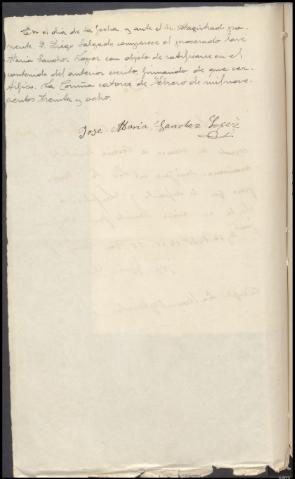 En el día de la fecha y ante el Sr. Magistrado po-
nente D. Lugo Salgado comparece el procesado José
María Sánchez con objeto de ratificarse en el
contenido del anterior escrito, firmando de que cer-
tifico. La Coruña catorce de Febrero de mil nove-
cientos treinta y ocho.
José María Sanchez